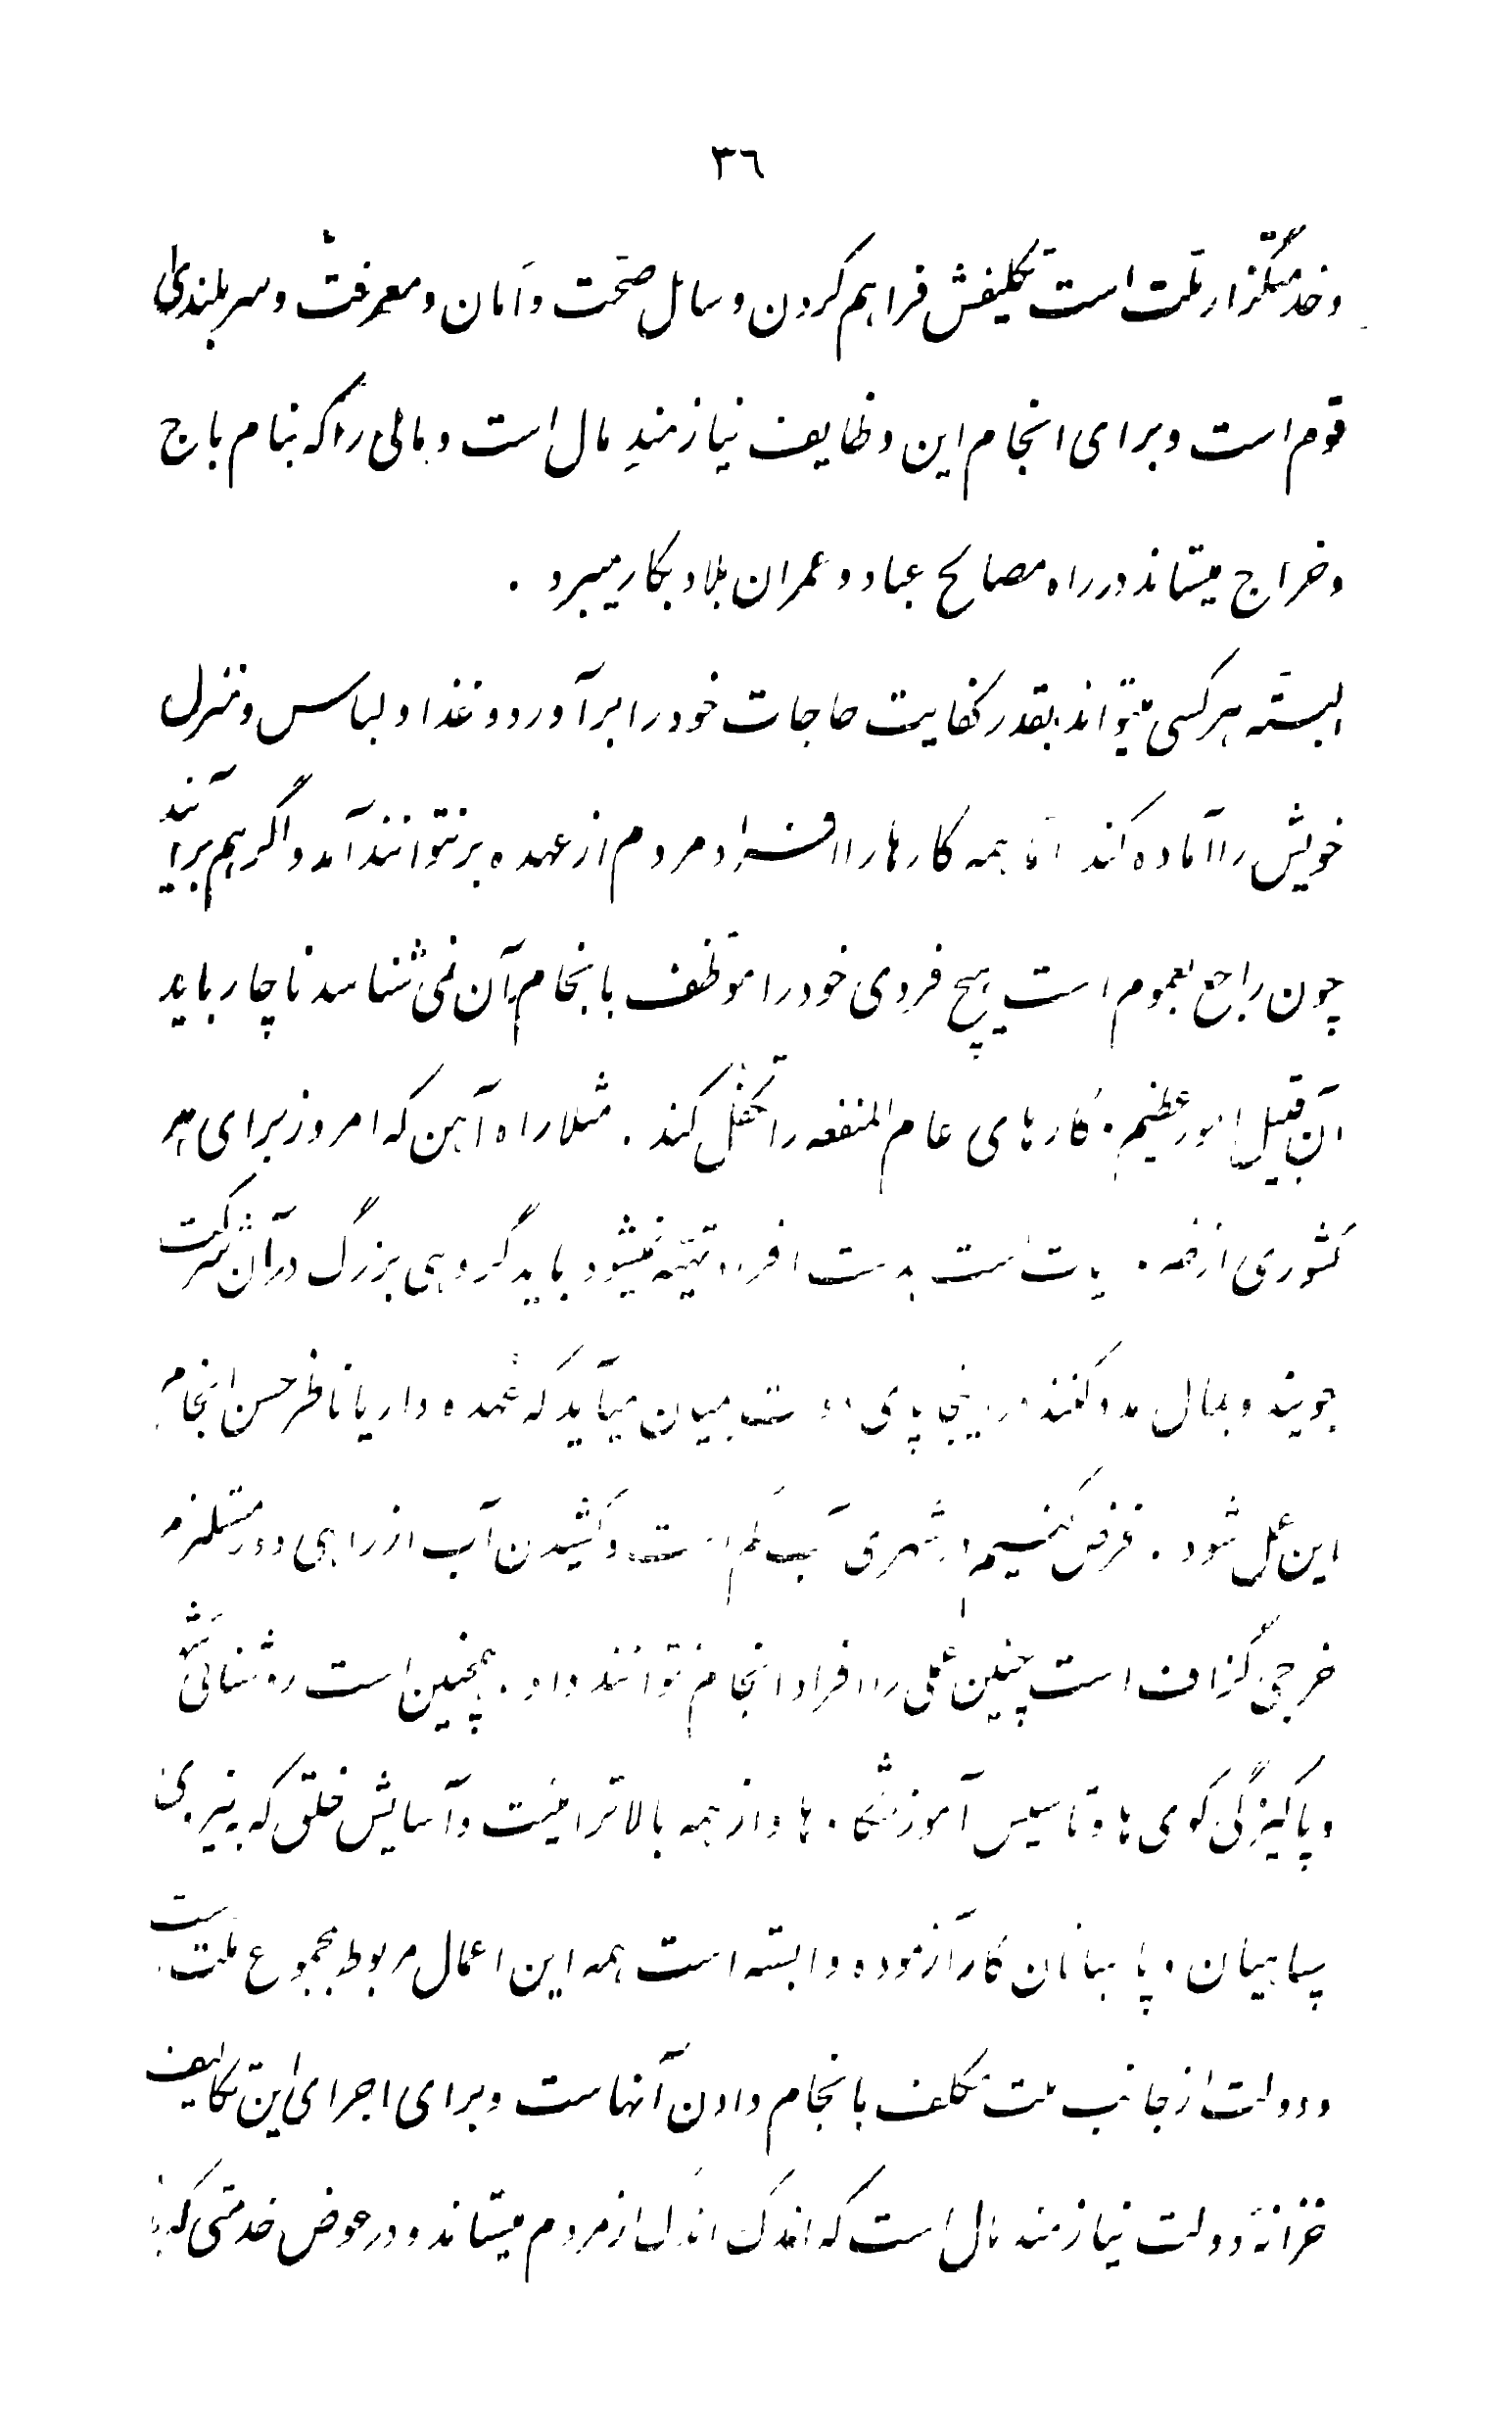 ۳۶
وخدمتگزار ملت است تکلیفش فراهم کردن وسائل صحت وامان ومعرفت وسربلندی
قوم است وبرای انجام این وظایف نیازمندِ مال است ومالی راکه بنام باج
وخراج میستاند درراه مصالح عباد وعمران بلاد بکارمیبرد .
البته هرکسی میتواند بقدر کفایت حاجات خودرابرآورد وغذا ولباس ومنزل
خویش راآماده کند امّا همه کارهاراافراد مردم ازعهده برنتوانندآمد واگرهم برآیند
چون راجع بعموم است هیچ فردی خودرا موظف بانجام آن نمی شناسد ناچار باید
آن قبیل امور عظیم و کارهای عام المنفعه را تکفّل کند . مثلا راه آهن که امروز برای هر
کشوری از ضروریات است بدست افراد تهیّه نمیشود باید گروهی بزرگ درآن شرکت
جویند وبمال مدد کنند دراینجا پای دولت بمیان میآید که عهده داریاناظر حسن انجام
این عمل شود . فرض کنیم درشهری آب کم است وکشیدن آب از راهی دور مستلزم
خرجی گزاف است چنین عملی راافراد انجام نتوانند داد . همچنین است روشنائی شهر
وپاکیزگی کوی ها وتاسیس آموزشگاه ها وازهمه بالاتر امنیت وآسایش خلق که به نیروی
سپاهیان و پاسبانان کارآزموده وابسته است همه این اعمال مربوط بمجموع ملت است
ودولت ازجانب ملت مکلف بانجام دادن آنهاست وبرای اجرای این تکالیف
خزانهٔ دولت نیازمند مال است که اندک اندک ازمردم میستاند ودرعوض خدمتی که